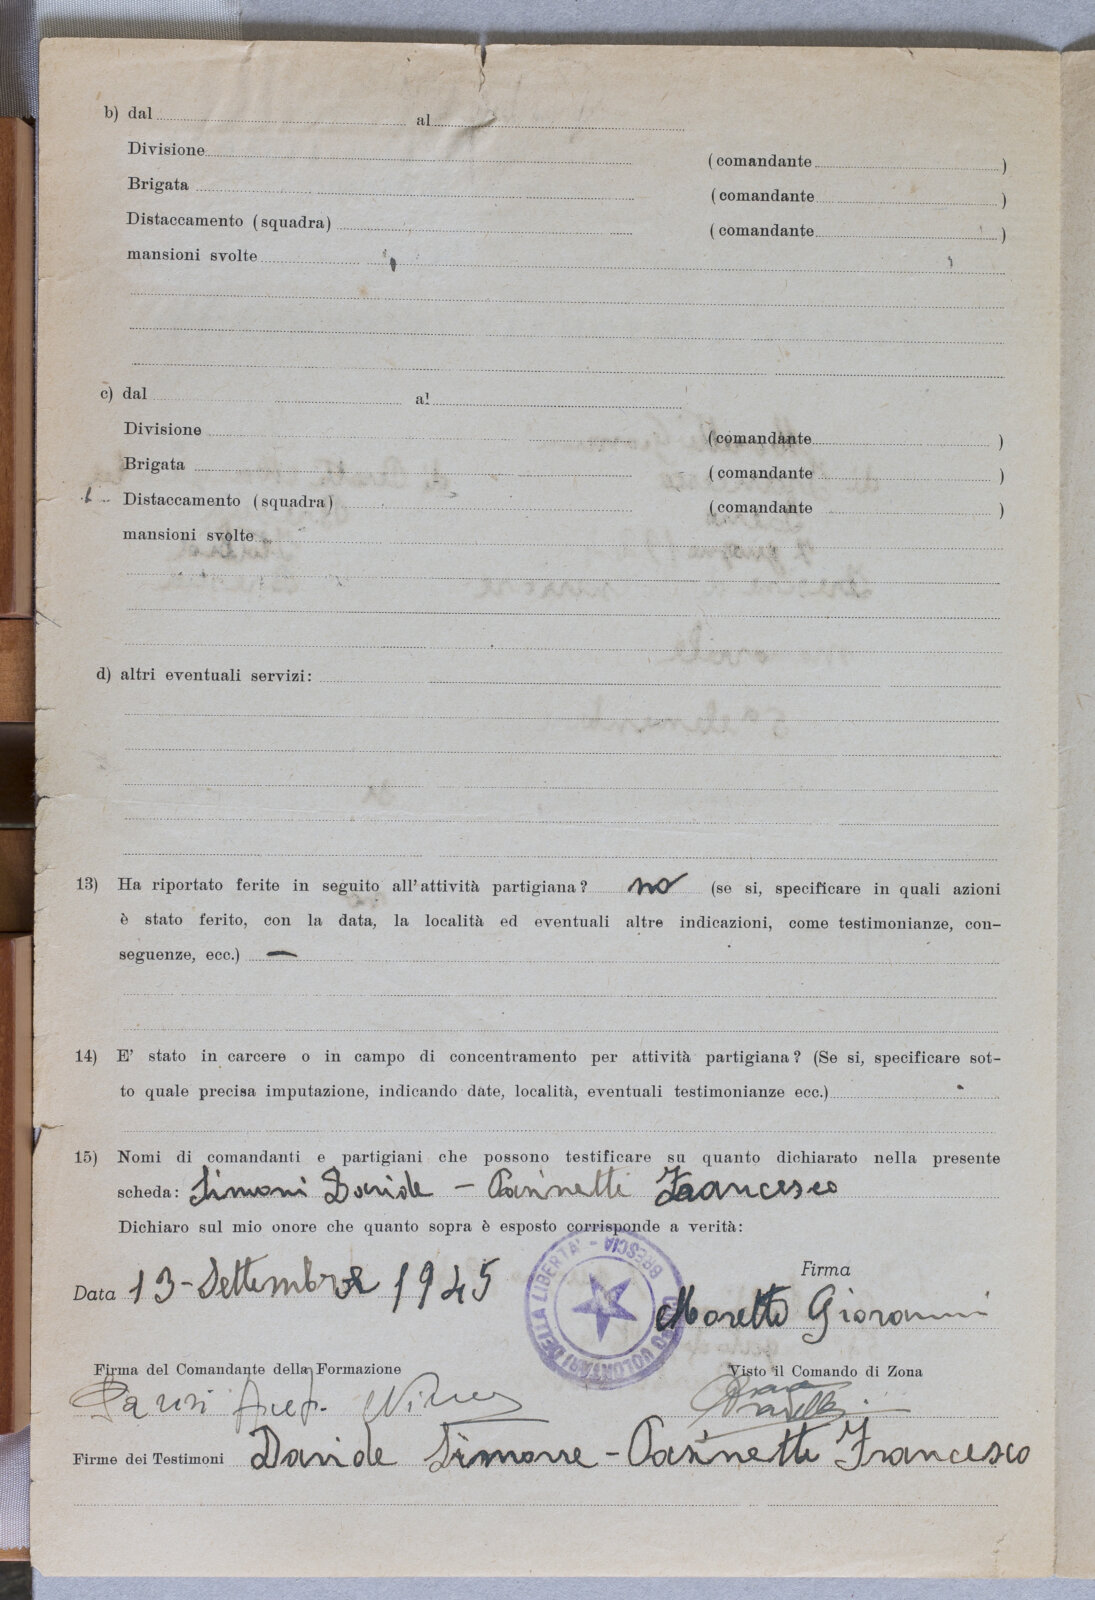 b) dal al
Divisione (comandante )
Brigata (comandante )
Distaccamento (squadra) (comandante )
mansioni svolte
c) dal al
Divisione (comandante )
Brigata (comandante )
Distaccamento (squadra) (comandante )
mansioni svolte
d) altri eventuali servizi:
13) Ha riportato ferite in seguito all'attività partigiana? no (se si, specificare in quali azioni
è stato ferito, con la data, la località ed eventuali altre indicazioni, come testimonianze, con-
seguenze, ecc.) —
14) E' stato in carcere o in campo di concentramento per attività partigiana? (Se si, specificare sot-
to quale precisa imputazione, indicando date, località, eventuali testimonianze ecc.)
15) Nomi di comandanti e partigiani che possono testificare su quanto dichiarato nella presente
scheda: Simoni Davide - Pasinetti Francesco
Dichiaro sul mio onore che quanto sopra è esposto corrisponde a verità:
VOLONTARI DELLA LIBERTA' - BRESCIA
Firma
Data 13 - Settembre 1945 Moretti Giovanni
Firma del Comandante della Formazione Visto il Comando di Zona
Firme dei Testimoni Davide Simone - Pasinetti Francesco